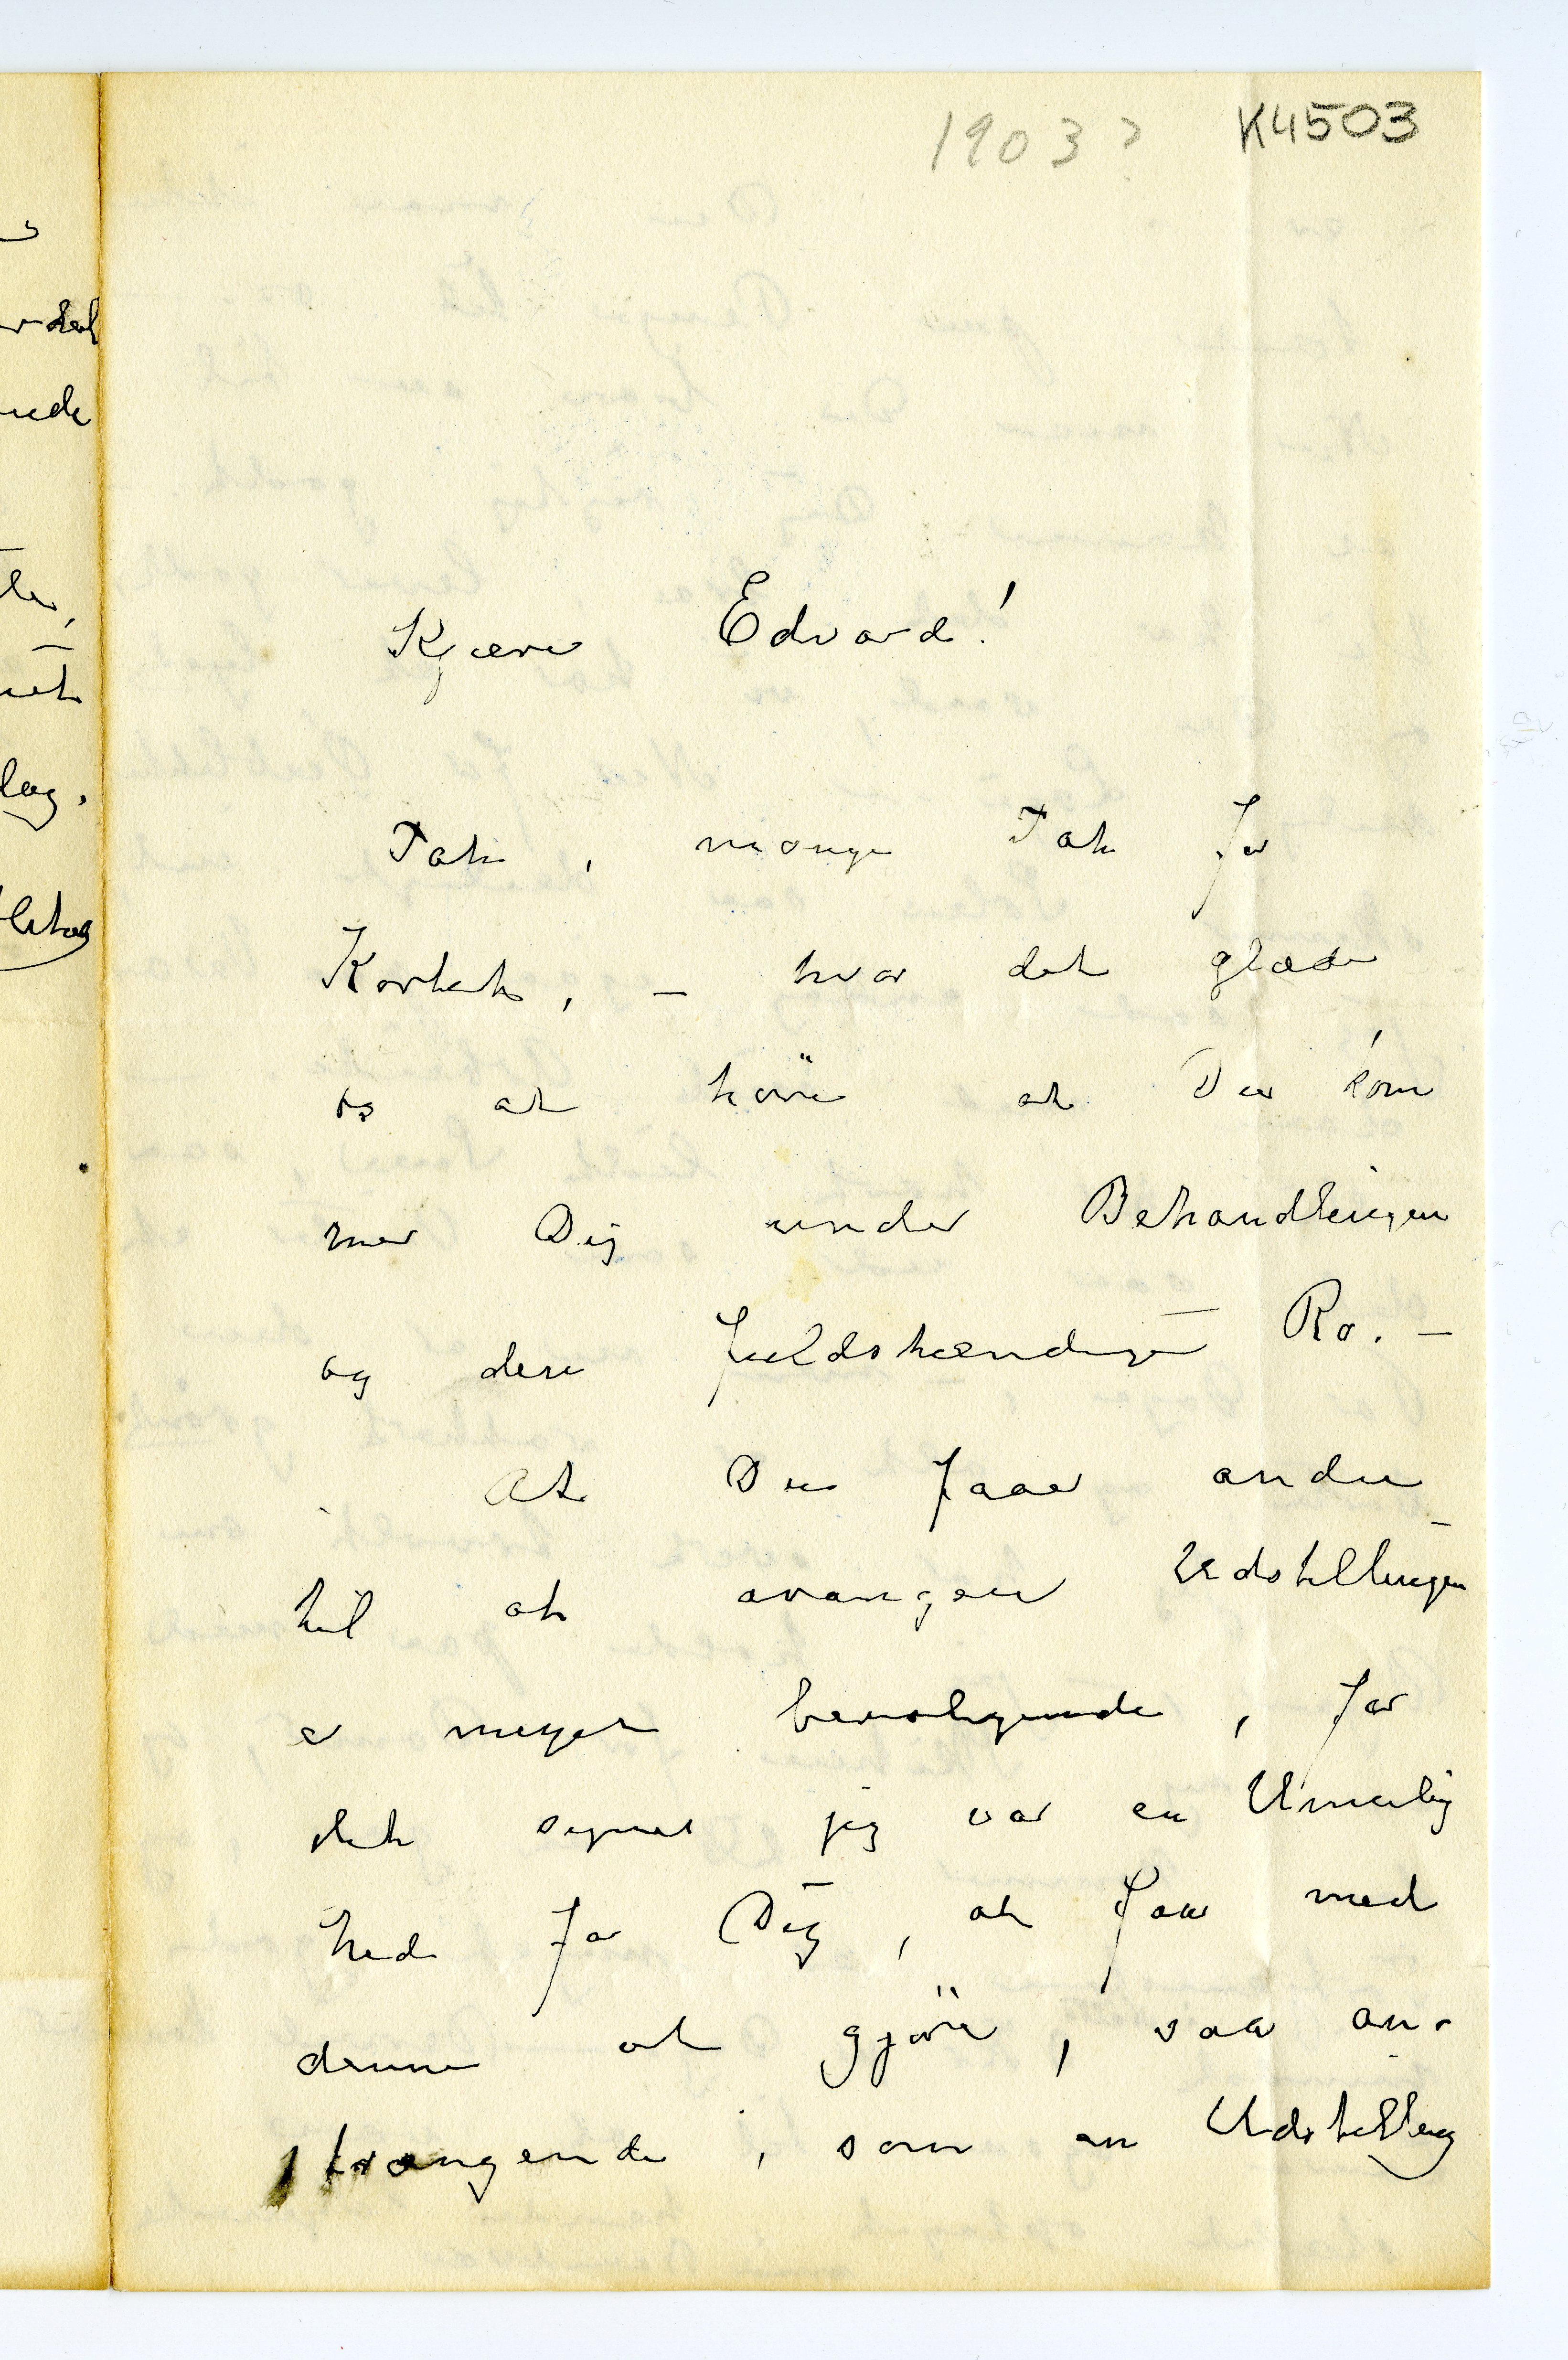 1903? K4503
Kjære Edvard!
Tak, mange Tak for
Kortet, – hvor det glæder
os at höre at Du kom-
mer Dig under Behandlingen
og den fuldstændige Ro. –
At Du faar andre
til at arangere Udstillingen
er meget beroligende, for
det synes jeg var en Umulig
hed for Dig, at faa med
denne at gjöre, saa an-
strangende, som en Udstilling